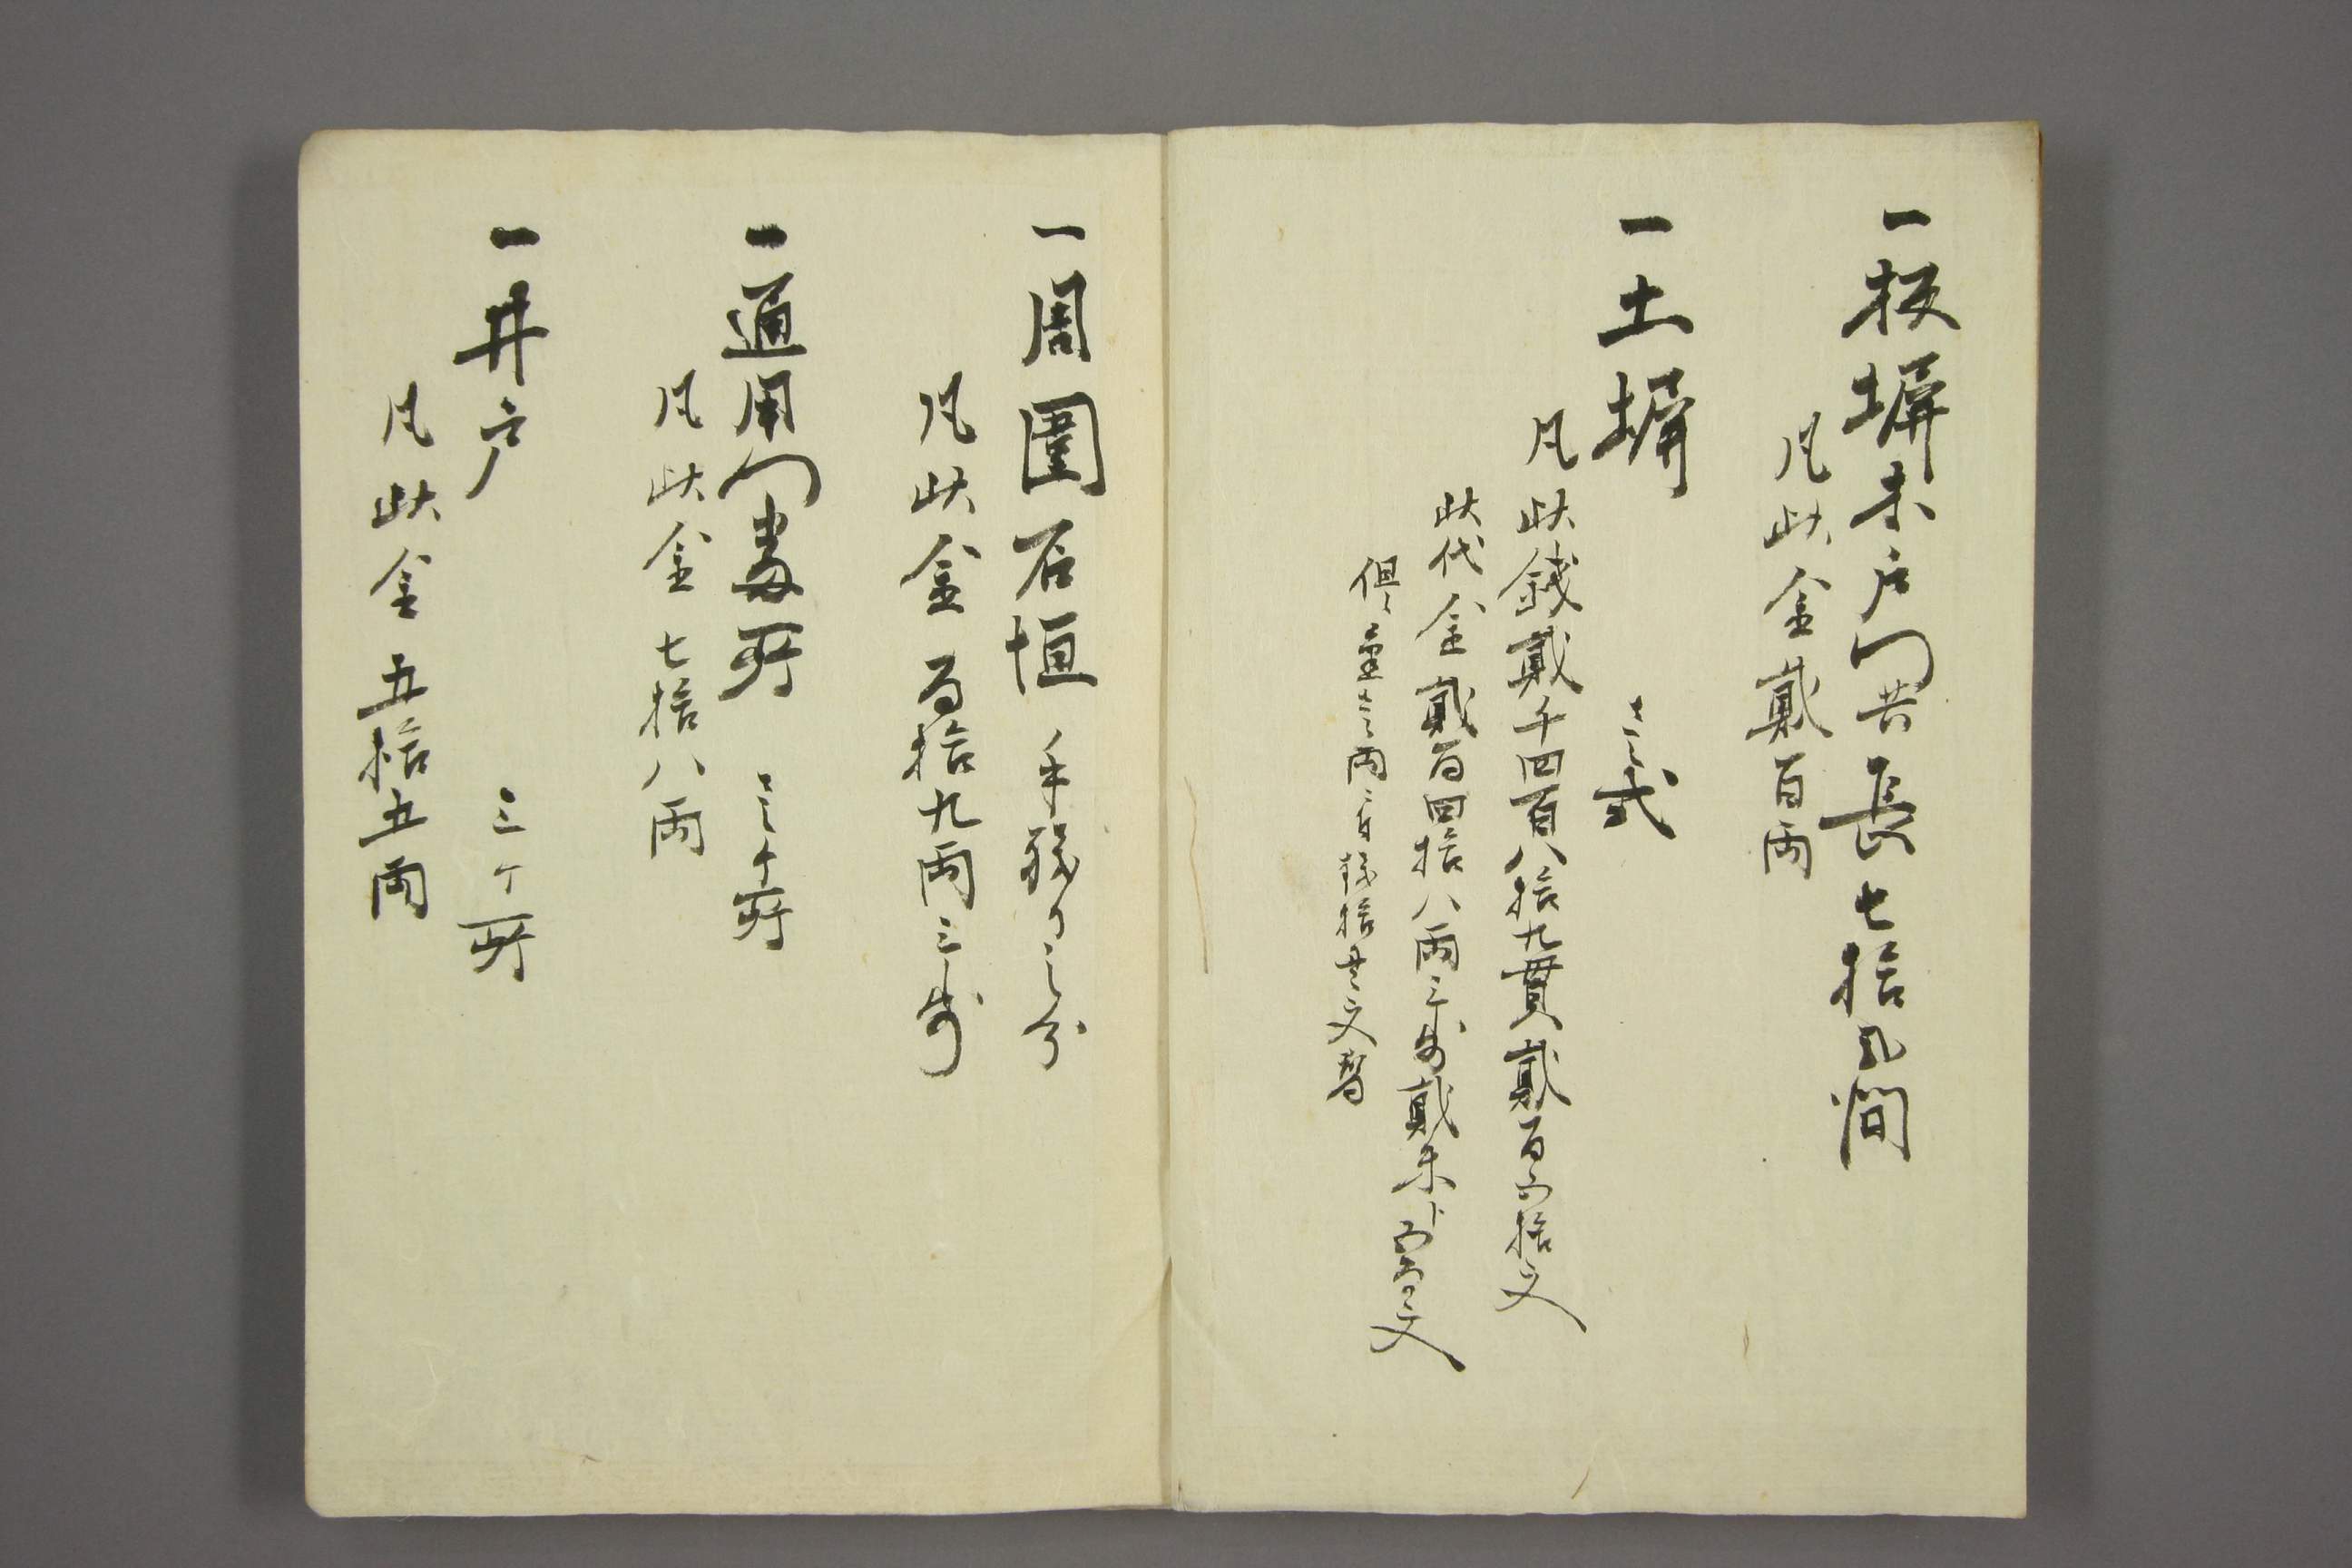 一板塀木戸門共長七拾九間
凡此金貳百両
一土塀 壱式
凡此銭貳千四百八拾九貫貳百五拾文
此代金貳百四拾八両三歩貳朱ト五百文
但シ金壱両ニ付銭拾貫文替
一周圍石垣 手残り之分
凡此金百拾九両三歩
一通用門番所 三ヶ所
凡此金七拾八両
一井戸 三ヶ所
凡此金五拾五両